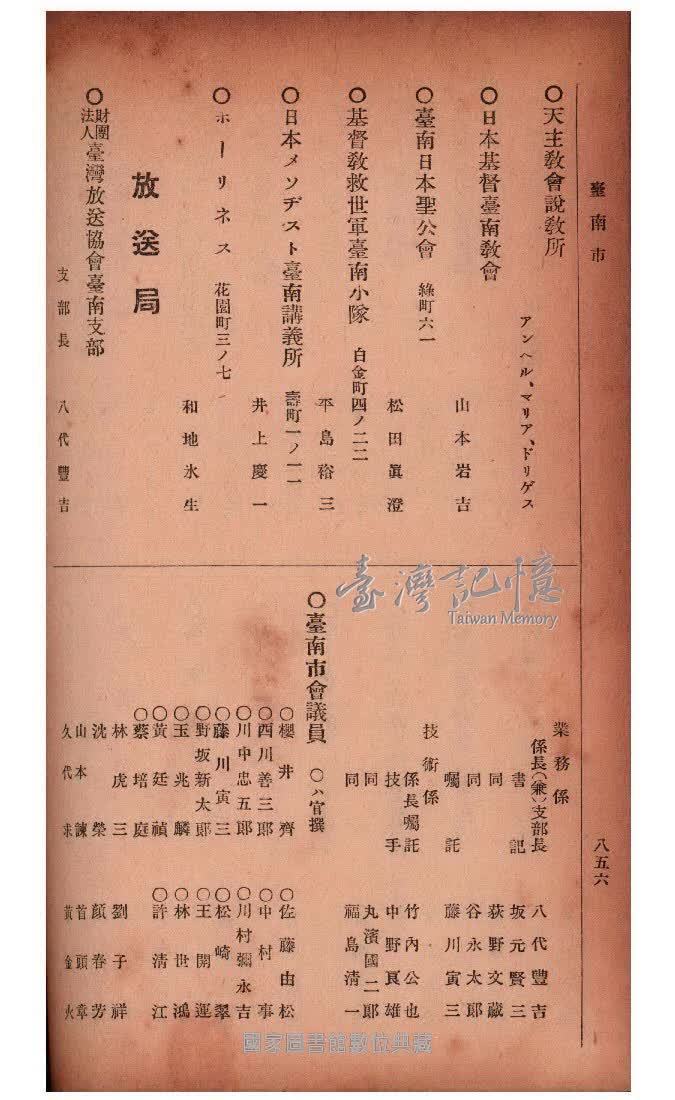 臺南市
八五六
〇天主敎會說敎所
アンヘル、マリア、ドリゲス
〇日本基督臺南敎會
山本岩吉
〇臺南日本聖公會 綠町六一
松田眞澄
〇基督敎救世軍臺南小隊 白金町四ノ二二
平島裕三
〇日本メソヂスト臺南講義所 壽町一ノ一一
井上慶一
〇ホーリネス 花園町三ノ七
和地氷生
放送局
〇財團法人臺灣放送協會臺南支部
支部長 八代豐吉
業務係
係長(兼)支部長 八代豐吉
書記 坂元賢三
同 荻野文藏
同 谷永太郎
囑託 藤川寅三
技術係
係長囑託 竹內公也
技手 中野良雄
同 丸濱國二郎
同 福島淸一
〇臺南市會議員 〇ハ官撰
〇櫻井齊 〇佐藤由松
〇西川善三郎 〇中村事
〇川中忠五郎 〇川村彌永吉
〇藤川寅三 〇松崎翠
〇野坂新太郎 〇王開運
〇玉兆麟 〇林世鴻
〇黃廷禎 〇許淸江
〇蔡培庭
林虎三 劉子祥
沈榮 顏春芳
山本諫 首頭章
久代求 黃金火
臺灣記憶
Taiwan Memory
國家圖書館數位典藏